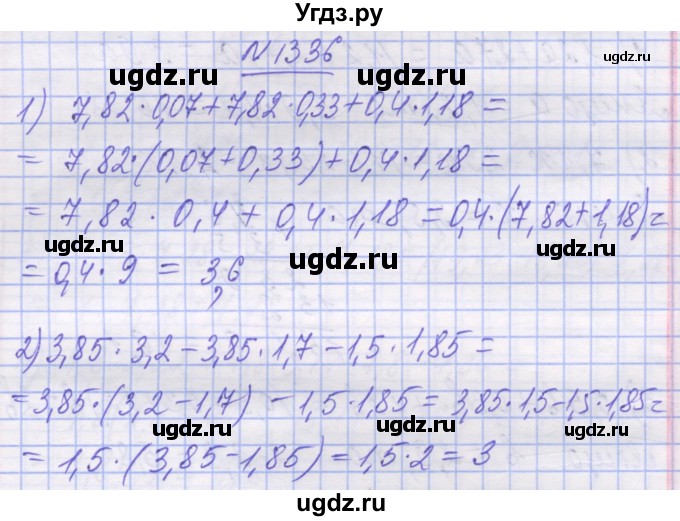 Угдз.ру
№1336
1) 7,82·0,07+7,82·0,33+0,4·1,18=
=7,82·(0,07+0,33)+0,4·1,18=
=7,82·0,4+0,4·1,18=0,4·(7,82+1,18)=
=0,4·9=3,6
2) 3,85·3,2-3,85·1,7-1,5·1,85=
=3,85·(3,2-1,7)-1,5·1,85=3,85·1,5-1,5·1,85=
=1,5·(3,85-1,85)=1,5·2=3
ugdz.ru
ugdz.ru
ugdz.ru
ugdz.ru
ugdz.ru
ugdz.ru
ugdz.ru
ugdz.ru
ugdz.ru
ugdz.ru
ugdz.ru